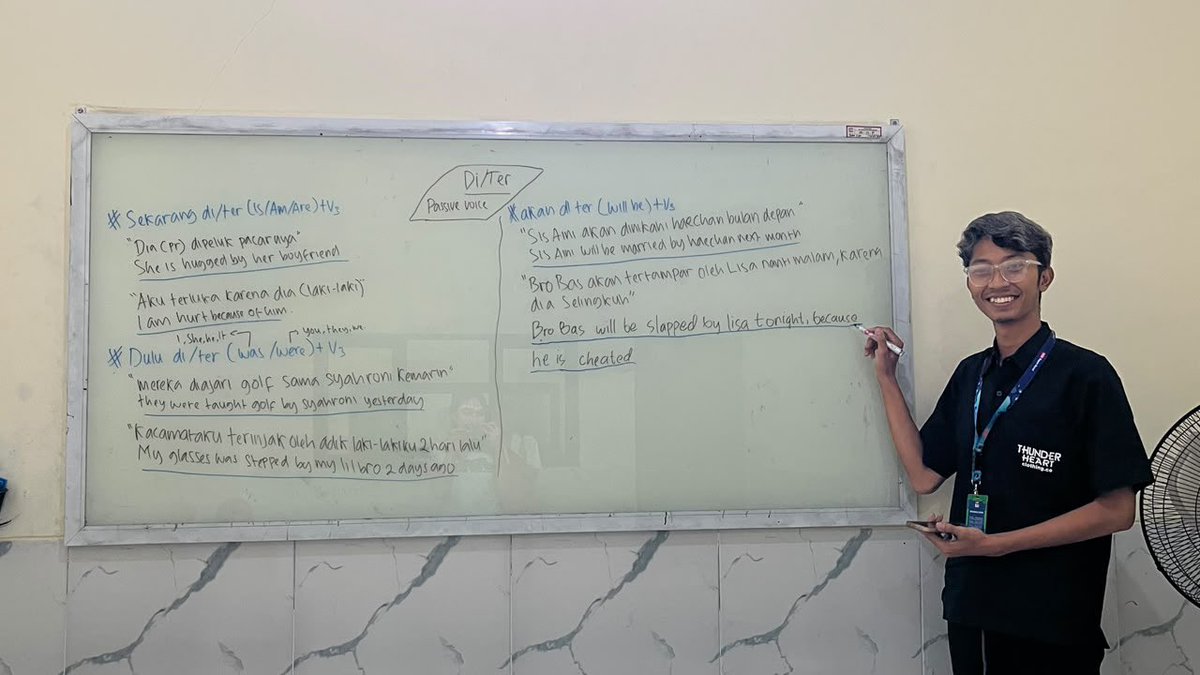 Di/Ter
Passive voice
# Sekarang di/ter (Is/Am/Are)+V3
"Dia (Pr) dipeluk pacaraya"
She is hugged by her boyfriend
"Aku terluka karena dia (laki-laki)"
I am hurt because of him.
I, She, he, it
you, they, we
# Dulu di/ter (was/were)+V3
"Mereka diajari golf sama Syahroni kemarin"
they were taught golf by syahroni yesterday
"Kacamataku terinjak oleh adik laki-lakiku 2 hari lalu"
My glasses was stepped by my lil bro 2 days ago
# akan di ter (will be)+V3
"Sis Ami akan dinikahi haechan bulan depan"
Sis Ami will be married by haechan next month
"Bro Bas akan tertampar oleh Lisa nanti malam, karena
dia Selingkuh"
Bro Bas will be slapped by lisa tonight, because
he is cheated
THUNDER
HEART
clothing.co